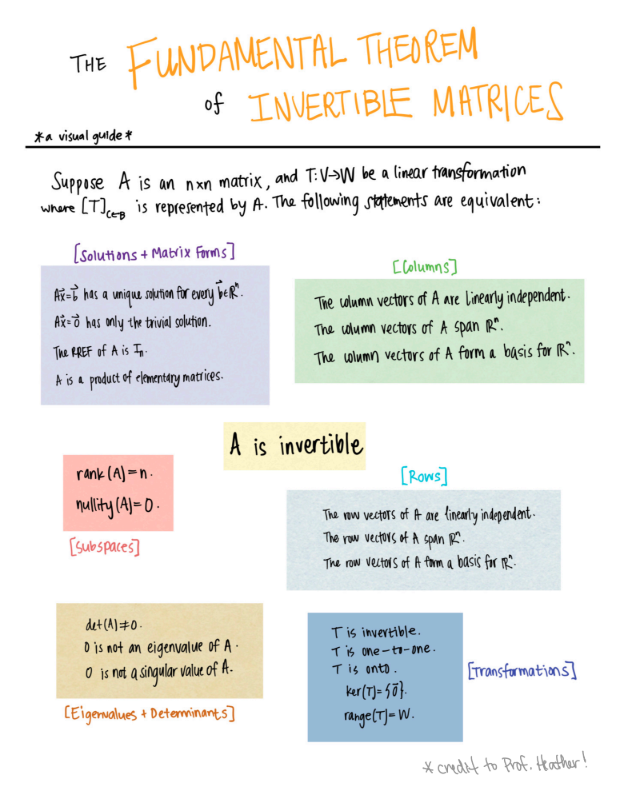 THE FUNDAMENTAL THEOREM
of INVERTIBLE MATRICES
*a visual guide*
Suppose A is an n×n matrix, and T:V→W be a linear transformation
where [T]C←B is represented by A. The following statements are equivalent:
[Solutions + Matrix Forms]
Ax⃗=b⃗ has a unique solution for every b⃗∈ℝⁿ.
Ax⃗=0⃗ has only the trivial solution.
The RREF of A is Iₙ.
A is a product of elementary matrices.
[Columns]
The column vectors of A are linearly independent.
The column vectors of A span ℝⁿ.
The column vectors of A form a basis for ℝⁿ.
A is invertible
rank(A)=n.
nullity(A)=0.
[Subspaces]
[Rows]
The row vectors of A are linearly independent.
The row vectors of A span ℝⁿ.
The row vectors of A form a basis for ℝⁿ.
det(A)≠0.
0 is not an eigenvalue of A.
0 is not a singular value of A.
[Eigenvalues + Determinants]
T is invertible.
T is one-to-one.
T is onto.
ker(T)={0⃗}.
range(T)=W.
[Transformations]
*credit to Prof. Heather!